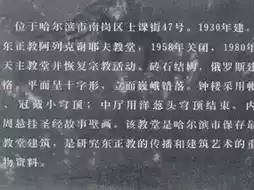 位于哈尔滨市南岗区士课街47号。1930年建。
东正教阿列克谢耶夫教堂，1958年关闭，1980年
天主教堂并恢复宗教活动。砖石结构，俄罗斯建
格，平面呈十字形，立面巍峨错落。钟楼采用帐
，冠戴小穹顶；中厅用洋葱头穹顶结束。内
周悬挂圣经故事壁画。该教堂是哈尔滨市保存最
教堂建筑，是研究东正教的传播和建筑艺术的重
物资料。